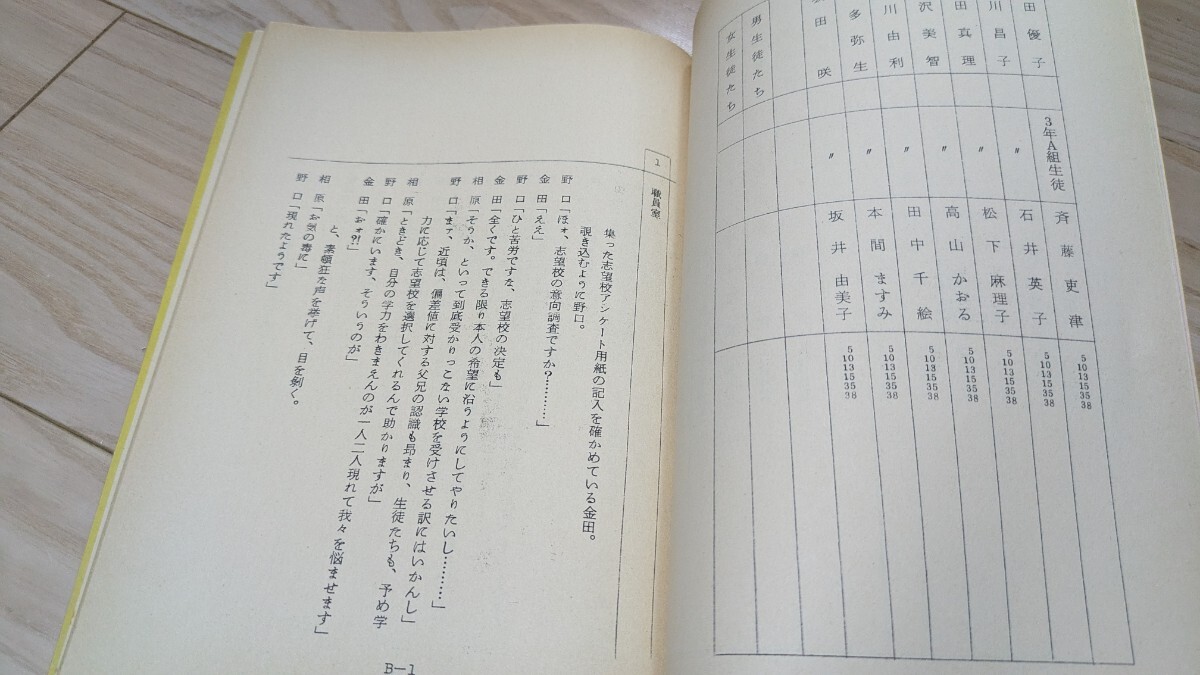 田優子 3年A組生徒 斉藤更津 5 10 13 15 35 38
川昌子 〃 石井英子 5 10 13 15 35 38
田真理 〃 松下麻理子 5 10 13 15 35 38
沢美智 〃 高山かおる 5 10 13 15 35 38
川由利 〃 田中千絵 5 10 13 15 35 38
多弥生 〃 本間ますみ 5 10 13 15 35 38
田咲 〃 坂井由美子 5 10 13 15 35 38
男生徒たち
女生徒たち
1 職員室
集った志望校アンケート用紙の記入を確かめている金田。
覗き込むように野口。
野口「ほォ、志望校の意向調査ですか?…………」
金田「ええ」
野口「ひと苦労ですな、志望校の決定も」
金田「全くです。できる限り本人の希望に沿うようにしてやりたいし…………」
相原「そうか、といって到底受かりっこない学校を受けさせる訳にはいかんし」
野口「まァ、近頃は、偏差値に対する父兄の認識も昂まり、生徒たちも、予め学
力に応じて志望校を選択してくれるんで助かりますが」
相原「ときどき、自分の学力をわきまえんのが一人二人現れて我々を悩ませます」
野口「確かにいます、そういうのが」
金田「おォ?!」
と、素頓狂な声を挙げて、目を剝く。
相原「お気の毒に」
野口「現れたようです」
B-1